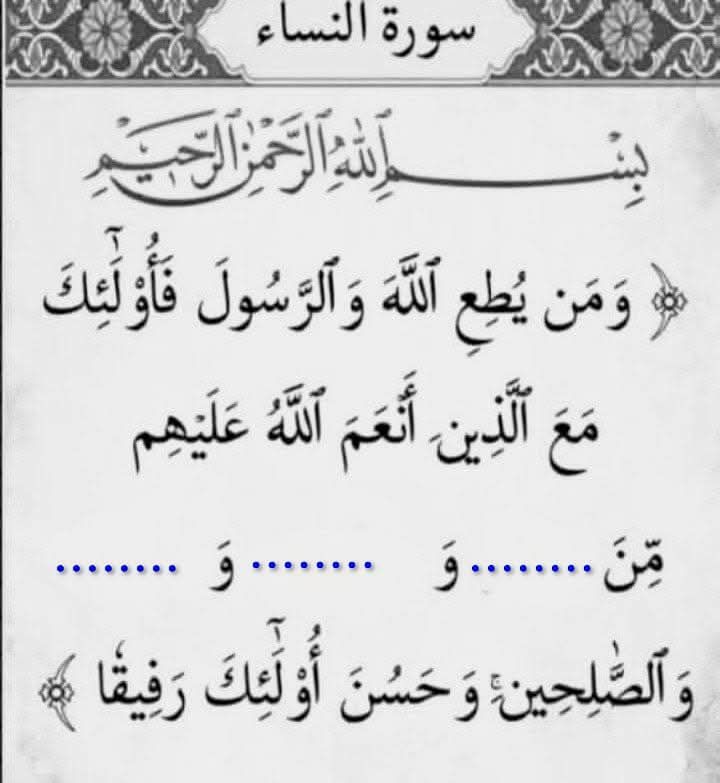 سورة النساء
بِسْمِ ٱللَّهِ ٱلرَّحْمَٰنِ ٱلرَّحِيمِ
﴿ وَمَن يُطِعِ ٱللَّهَ وَٱلرَّسُولَ فَأُو۟لَٰٓئِكَ
مَعَ ٱلَّذِينَ أَنْعَمَ ٱللَّهُ عَلَيْهِم
مِّنَ ........ وَ ........ وَ ........
وَٱلصَّٰلِحِينَۚ وَحَسُنَ أُو۟لَٰٓئِكَ رَفِيقًا ﴾